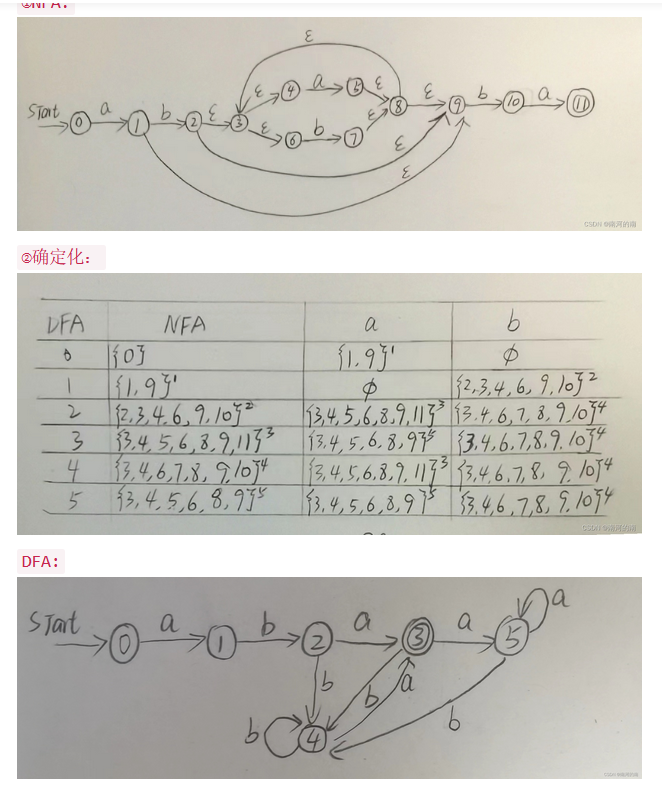 ①NFA:
ε
ε 4 a 5 ε
Start 0 a 1 b 2 ε 3 8 ε 9 b 10 a 11
ε 6 b 7 ε
ε
ε
CSDN @南河的南
②确定化：
DFA NFA a b
0 {0} {1,9}¹ ϕ
1 {1,9}¹ ϕ {2,3,4,6,9,10}²
2 {2,3,4,6,9,10}² {3,4,5,6,8,9,11}³ {3.4,6,7,8,9.10}⁴
3 {3.4,5,6,8,9,11}³ {3,4,5,6,8,9}⁵ {3,4,6,7,8,9.10}⁴
4 {3,4,6,7,8,9.10}⁴ {3,4,5,6,8,9,11}³ {3,4,6,7,8,9.10}⁴
5 {3,4,5,6,8,9}⁵ {3,4,5,6,8,9}⁵ {3,4,6,7,8,9.10}⁴
CSDN @南河的南
DFA:
Start 0 a 1 b 2 a 3 a 5 a
b b a
b 4 b